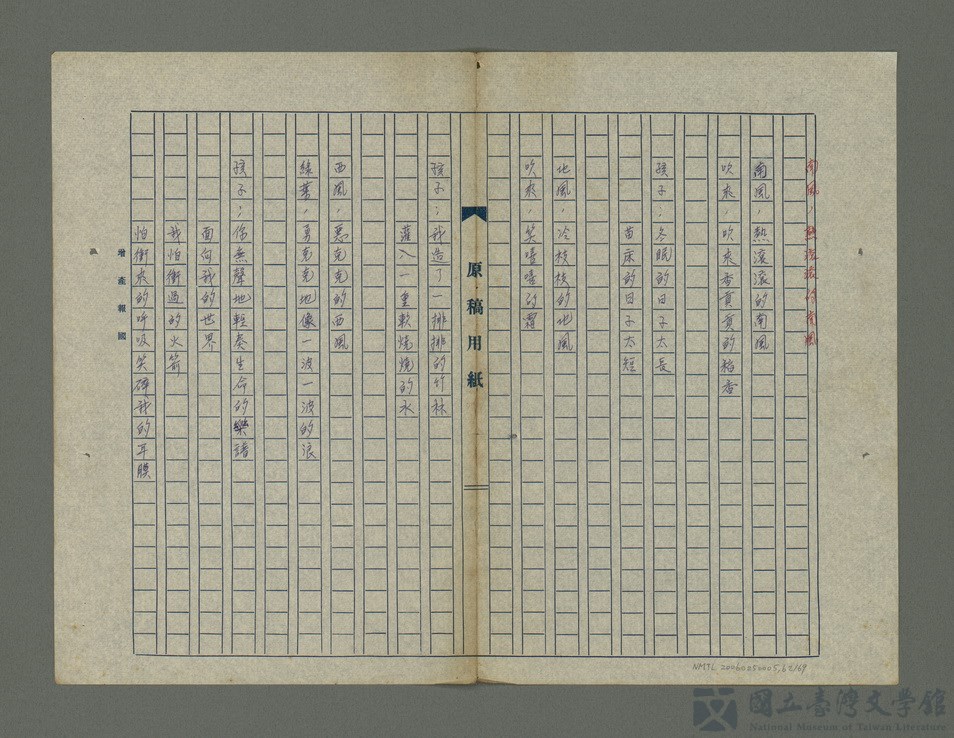 南風,熱滾滾的南風
南風,熱滾滾的南風
吹來,吹來香貢貢的稻香
孩子;冬眠的日子太長
苗床的日子太短
北風,冷枝枝的北風
吹來,笑嘻嘻的霜
原稿用紙
孩子;我造了一排排的竹林
灌入一重軟燒燒的水
西風,惡克克的西風
綠葉,勇克克地像一波一波的浪
孩子;你無聲地輕奏生命的樂譜
面向我的世界
我怕衝過的火箭
怕衝來的呼吸笑碎我的耳膜
增產報國
NMTL 20060250005.62/69
國立臺灣文學館
National Museum of Taiwan Literature